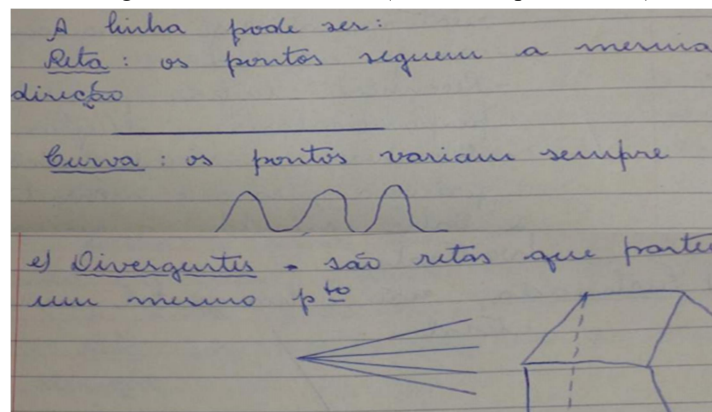 A linha pode ser:
Reta: os pontos seguem a mesma
direção
Curva: os pontos variam sempre
e) Divergentes - são retas que parte
um mesmo pto